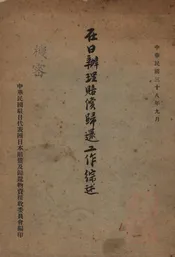 中華民國三十八年九月
在日辦理賠償歸還工作綜述
中華民國駐日代表團日本賠償及歸還物資接收委員會編印